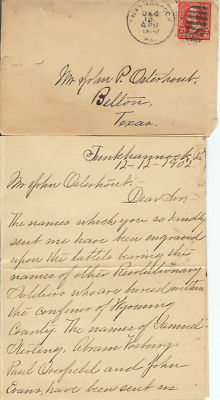 Mr John P. Osterhout.
Belton,
Texas.
Tunkhannock, Pa
12-12-1902
Mr John Osterhout;
Dear Sir-
The names which you so kindly
sent me have been engraved
upon the labels baring the
names of other Revolutionary
Soldiers who are buried within
the confines of Wyoming
County. The names of Samuel
Sterling, Abram
Paul and John
Evans, have been sent us